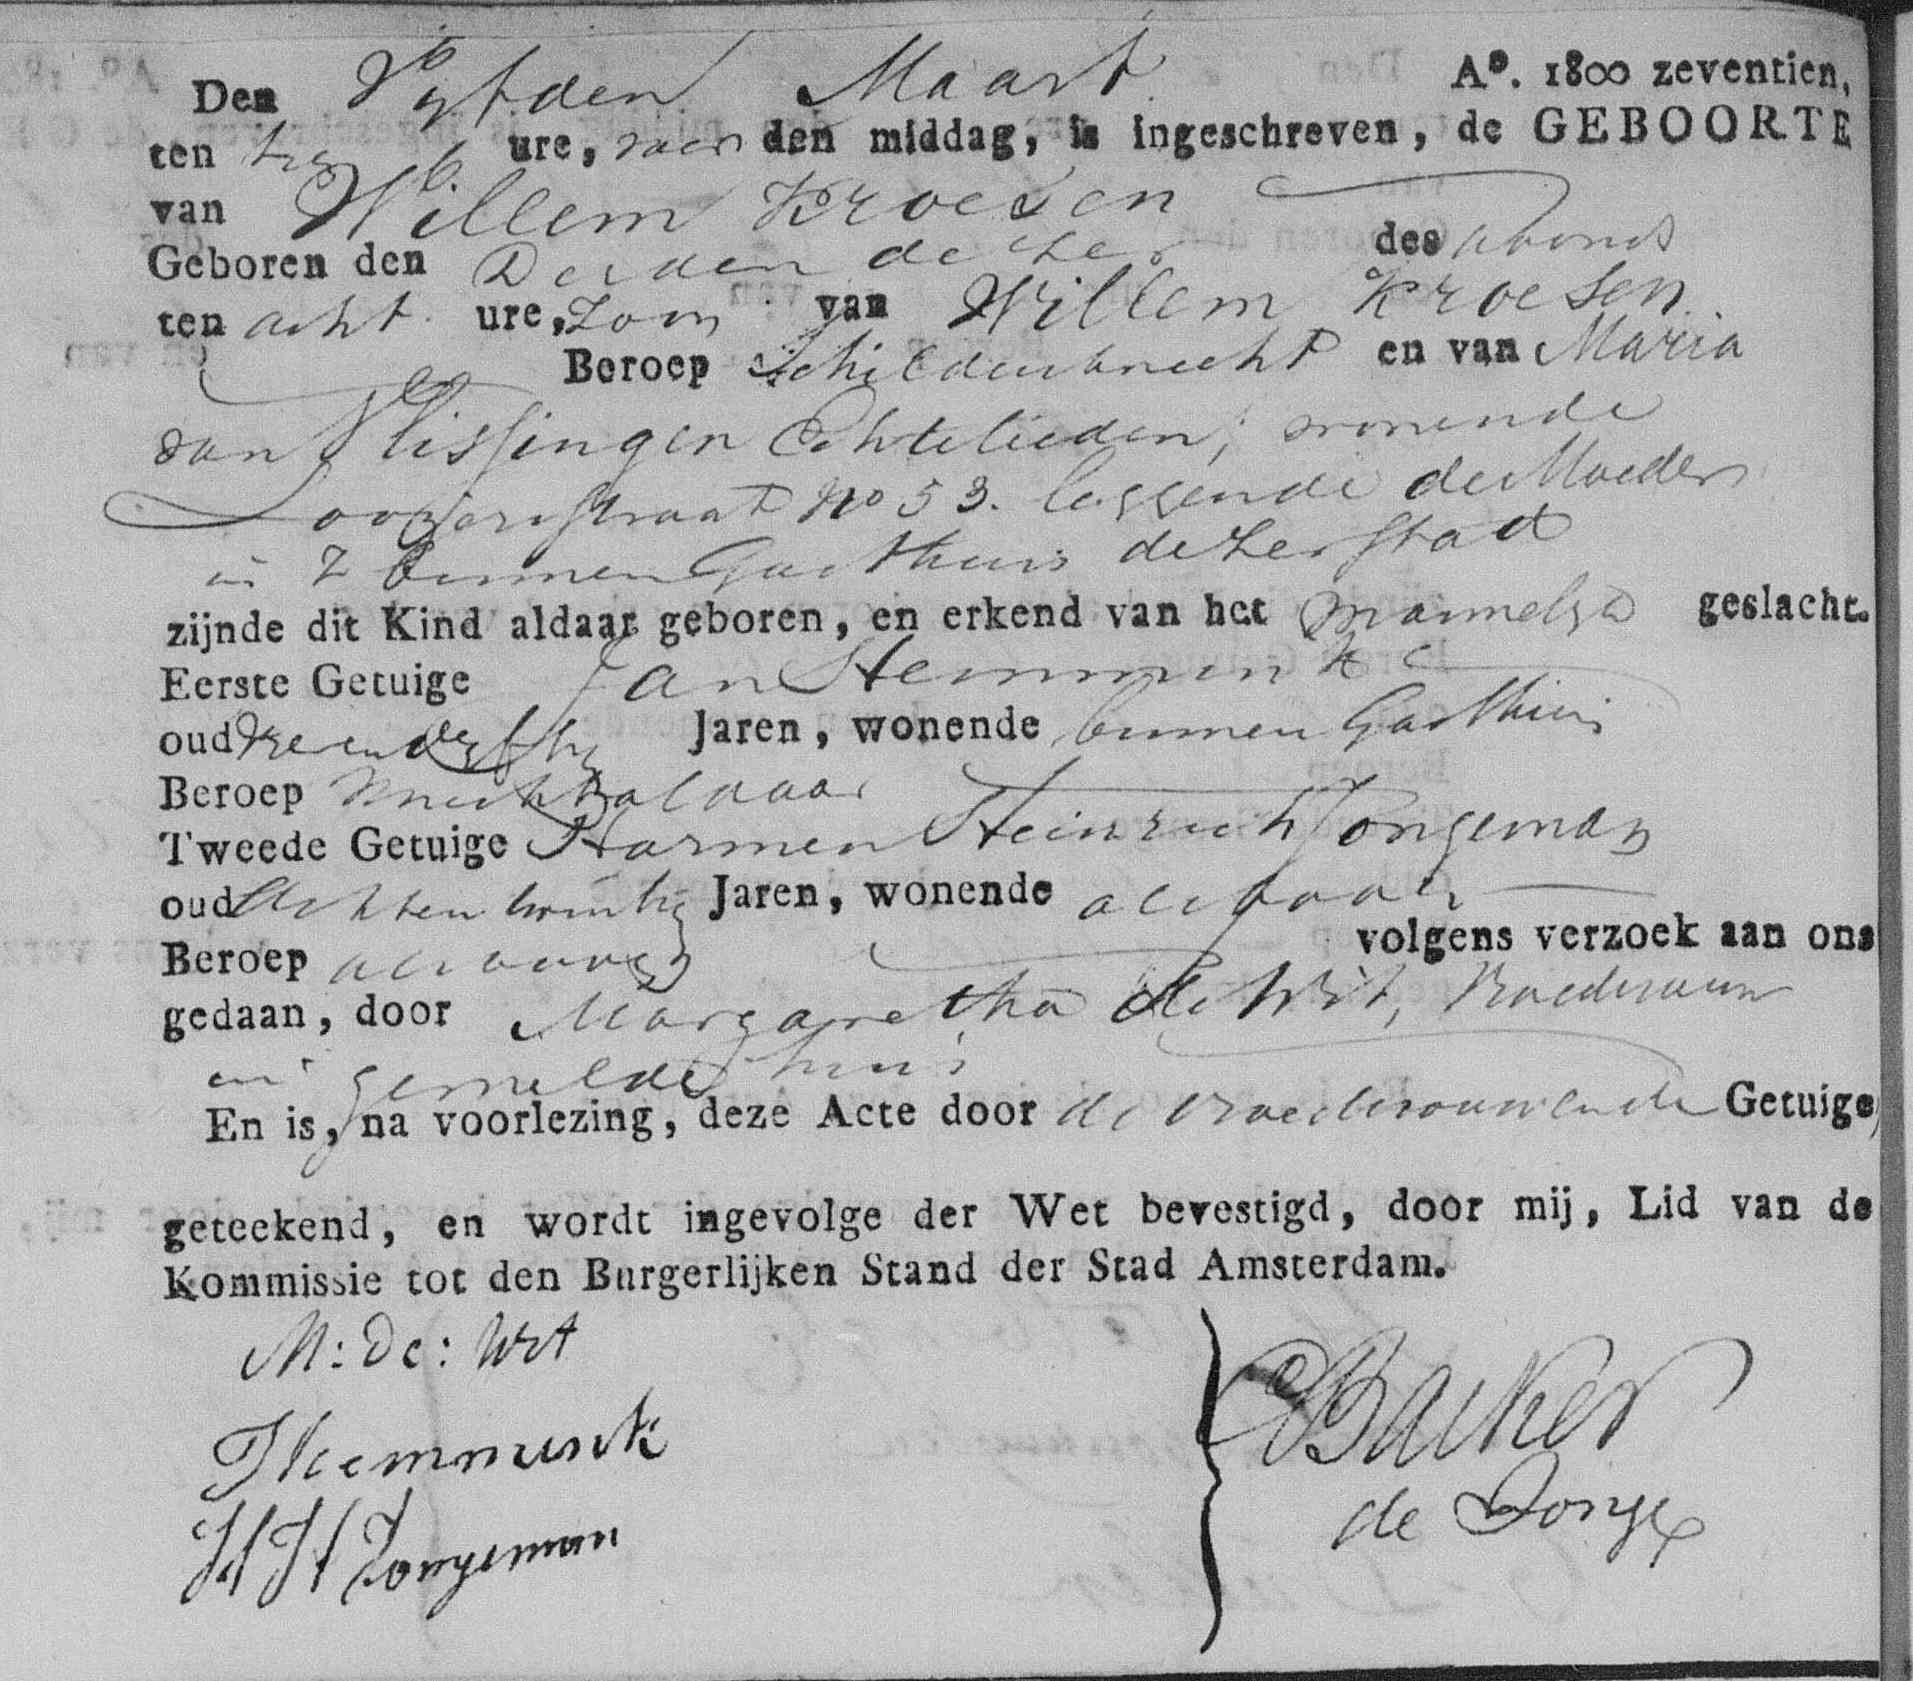 Den Vyfden Maart Aº. 1800 zeventien,
ten tien ure, voor den middag, is ingeschreven, de GEBOORTE
van Willem Kroesen
Geboren den Derden dezer des avonds
ten acht ure, Zoon van Willem Kroesen
Beroep Schildersknecht en van Maria
van Vlissingen Echtelieden, wonende
Looyerstraat No 53. leggende de Moeder
in 't binnen Gasthuis dezer Stad
zijnde dit Kind aldaar geboren, en erkend van het mannelyk geslacht.
Eerste Getuige Jan Hemmink
oud Jaren, wonende binnen Gasthuis
Beroep knecht aldaar
Tweede Getuige Harmen Heinrich Jongeman
oud Achtentwintig Jaren, wonende aldaar
Beroep volgens verzoek aan ons
gedaan, door Margaretha de Wit, Vroedvrouw
in gemelde huis
En is, na voorlezing, deze Acte door de Vroedvrouw en de Getuige
geteekend, en wordt ingevolge der Wet bevestigd, door mij, Lid van de
Kommissie tot den Burgerlijken Stand der Stad Amsterdam.
M: De: Wit
J Hemmink
H H Jongeman
Backer
de Jonge